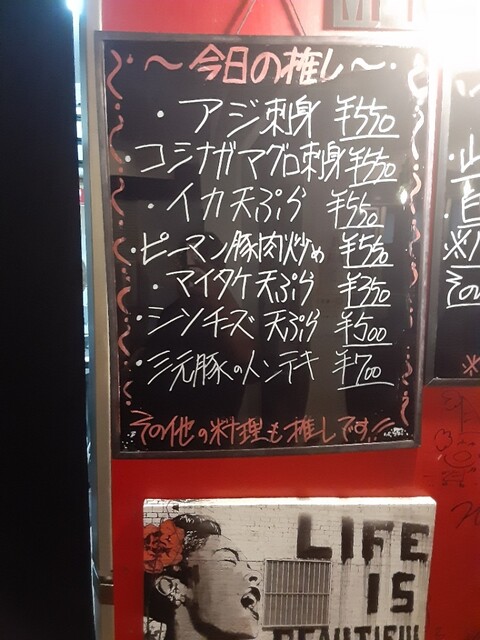 ～今日の推し～
・アジ刺身 ¥550
・コシナガマグロ刺身 ¥550
・イカ天ぷら ¥550
・ピーマン豚肉炒め ¥550
・マイタケ天ぷら ¥350
・シソチーズ天ぷら ¥500
・三元豚のトンテキ ¥700
その他の料理も推しです!!
LIFE
IS
BEAUTIFUL